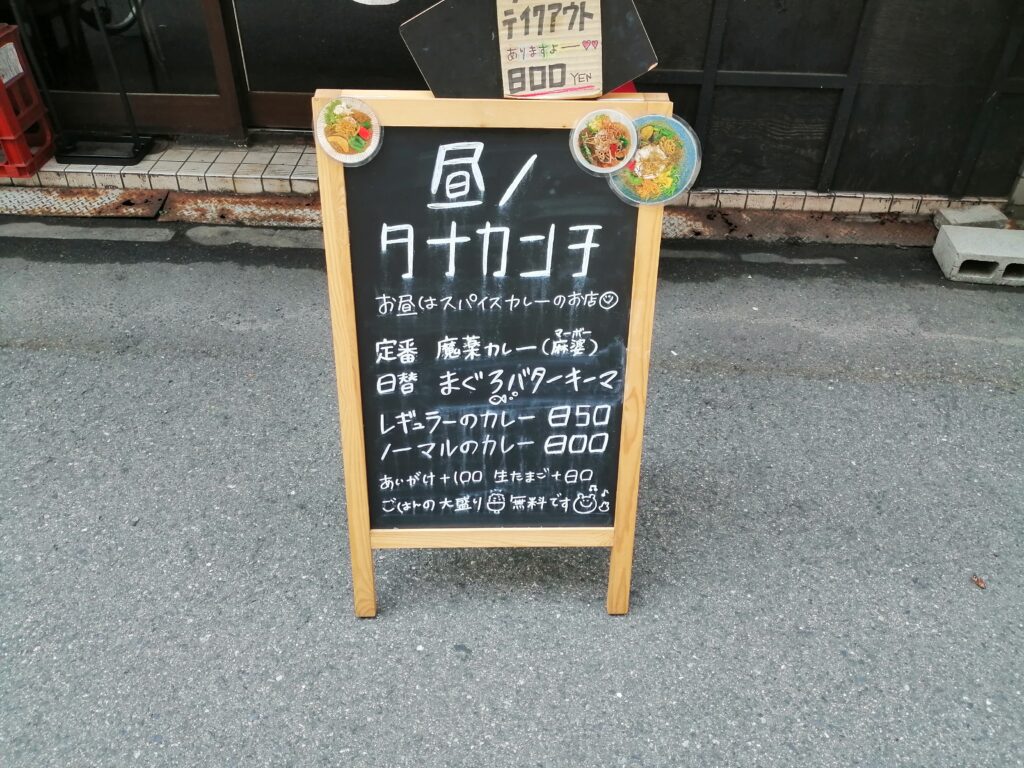 テイクアウト
ありますよー
800 YEN
昼ノ
タナカンチ
お昼はスパイスカレーのお店
定番 魔薬カレー(麻婆)
マーボー
日替 まぐろバターキーマ
レギュラーのカレー 850
ノーマルのカレー 800
あいがけ+100 生たまご+80
ごはんの大盛り 無料です